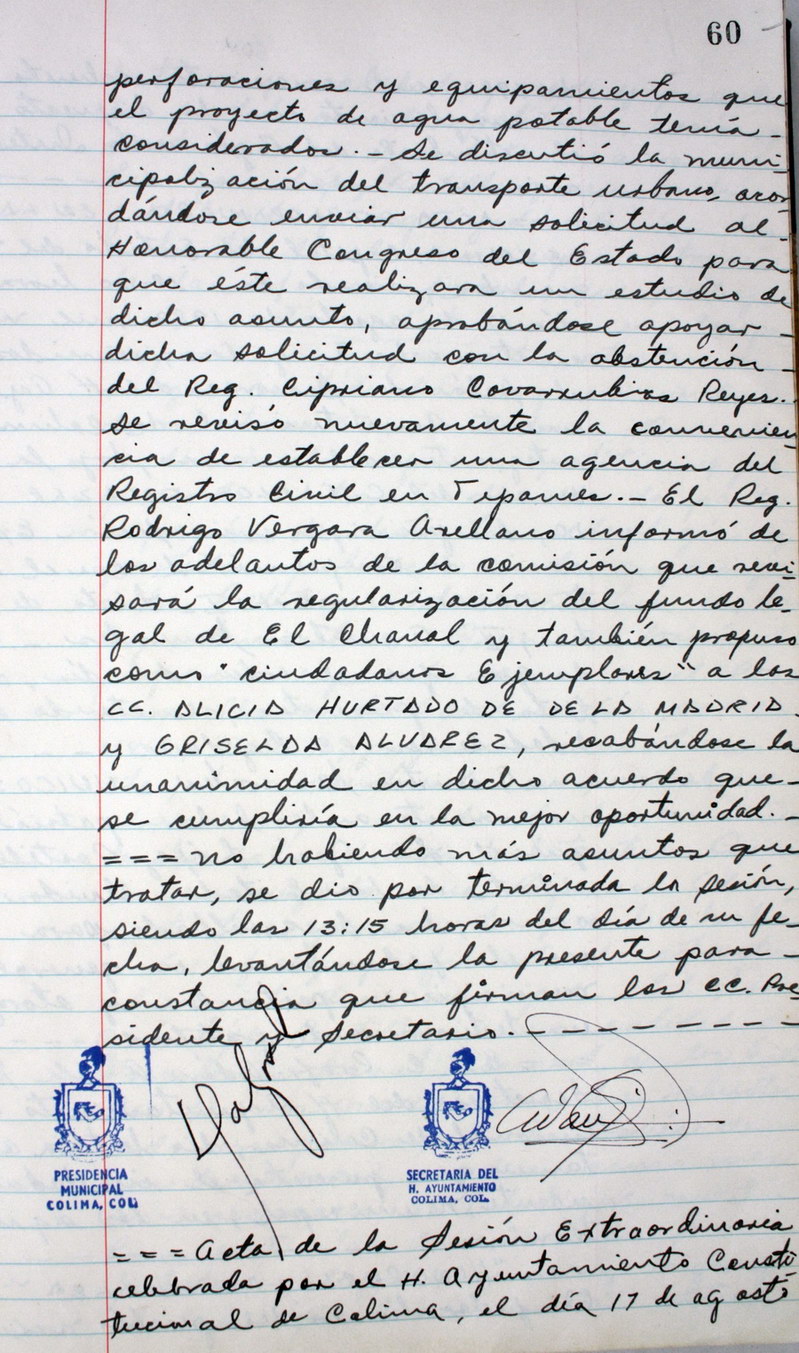 60
perforaciones y equipamientos que
el proyecto de agua potable tenía -
considerados. - Se discutió la muni-
cipalización del transporte urbano, acor
dándose enviar una solicitud al -
Honorable Congreso del Estado para
que éste realizara un estudio de
dicho asunto, aprobándose apoyar -
dicha solicitud con la abstención -
del Reg. Cipriano Covarrubias Reyes.
Se revisó nuevamente la convenien
cia de establecer una agencia del
Registro Civil en Tepames. - El Reg.
Rodrigo Vergara Arellano informó de
los adelantos de la comisión que revi
sará la regularización del fundo le-
gal de El Chanal y también propuso
como "ciudadanos Ejemplares" a las
CC. ALICIA HURTADO DE DE LA MADRID
y GRISELDA ALVAREZ, recabándose la
unanimidad en dicho acuerdo que -
se cumpliría en la mejor oportunidad. -
= = = No habiendo más asuntos que
tratar, se dio por terminada la Sesión,
siendo las 13:15 horas del día de su fe-
cha, levantándose la presente para -
constancia que firman los CC. Pre
sidente y Secretario. - - - - - - - -
PRESIDENCIA
MUNICIPAL
COLIMA, COL.
SECRETARIA DEL
H. AYUNTAMIENTO
COLIMA, COL.
= = = Acta de la Sesión Extraordinaria
celebrada por el H. Ayuntamiento Consti
tucional de Colima, el día 17 de agosto